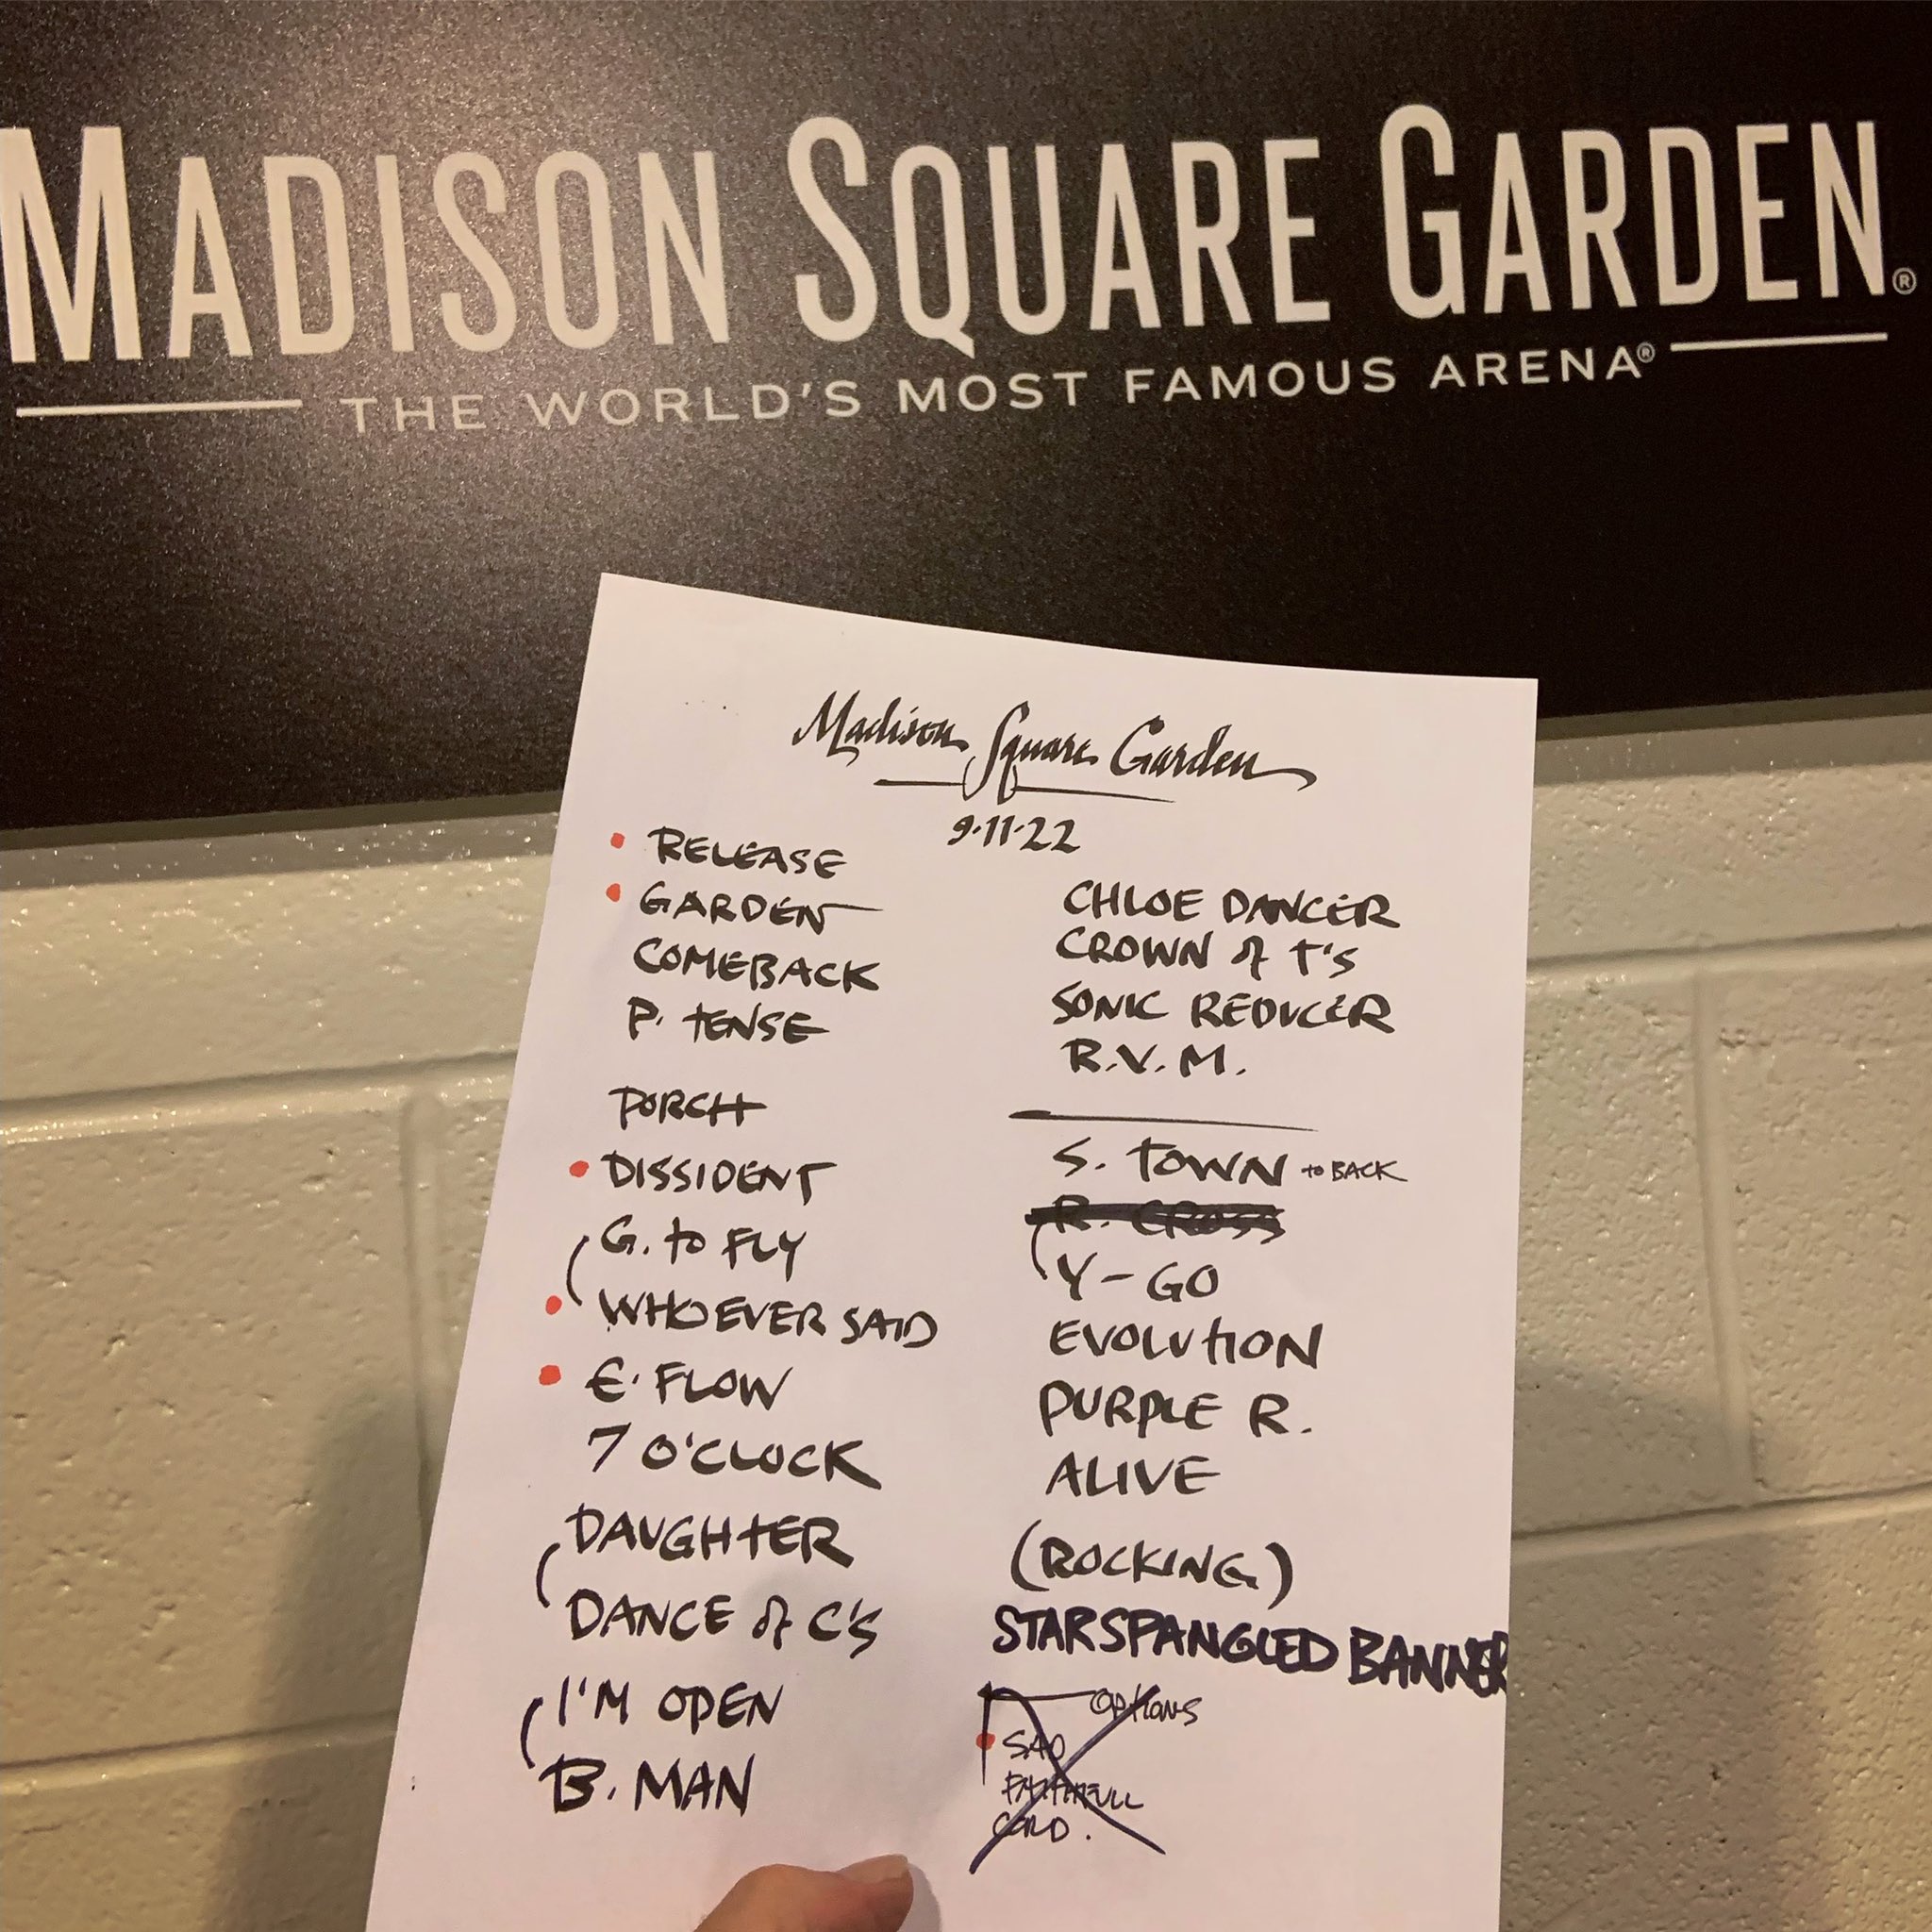 MADISON SQUARE GARDEN®
THE WORLD'S MOST FAMOUS ARENA®
Madison Square Garden
9·11·22
RELEASE
GARDEN
COMEBACK
P. TENSE
PORCH
DISSIDENT
G. to FLY
WHOEVER SAID
E. FLOW
7 O'CLOCK
DAUGHTER
DANCE of C'S
I'M OPEN
B. MAN
CHLOE DANCER
CROWN of T'S
SONIC REDUCER
R.V.M.
S. TOWN to BACK
R. CROSS
Y-GO
EVOLUTION
PURPLE R.
ALIVE
(ROCKING)
STARSPANGLED BANNER
OPTIONS
SAD
FAITHFULL
CORD.